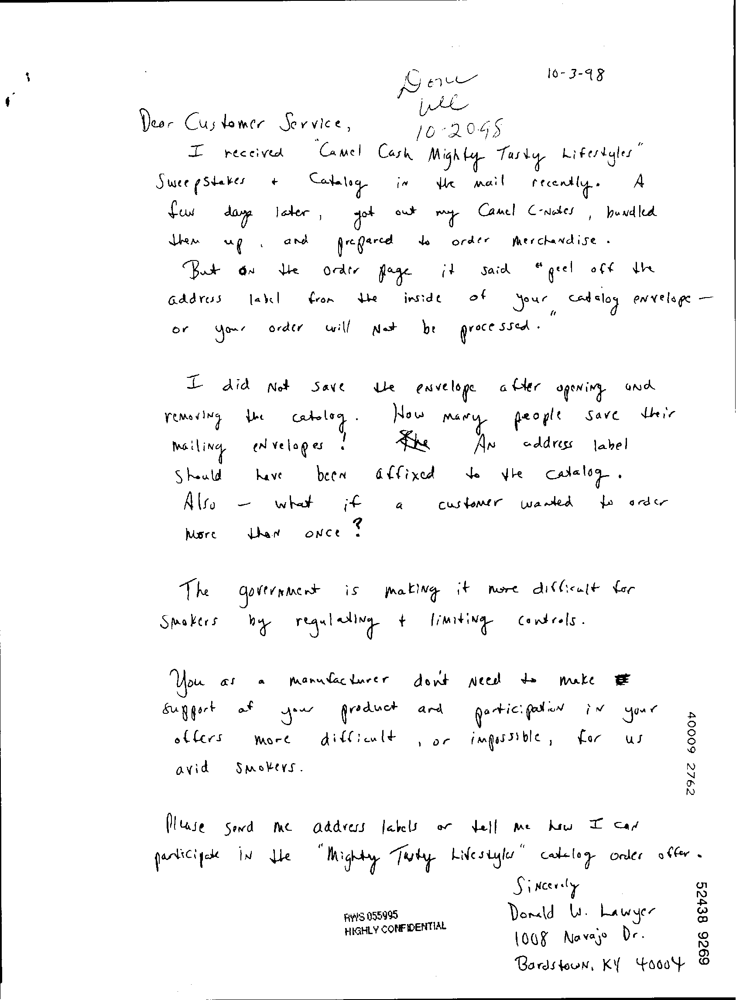 10-3-98
Done
10-20-98
Dear Customer Service,
I received "Camel Cash Mighty Tasty Lifestyles"
Sweepstakes + Catalog in the mail recently. A
few days later, got out my Camel C-Notes, bundled
them up, and prepared to order merchandise.
But on the order page it said "peel off the
address label from the inside of your catalog envelope -
or your order will not be processed."
I did not save the envelope after opening and
removing the catalog. How many people save their
mailing envelopes! An address label
should have been affixed to the catalog.
Also - what if a customer wanted to order
more than once?
The government is making it more difficult for
smokers by regulating + limiting controls.
You as a manufacturer don't need to make
support of your product and participation in your
offers more difficult, or impossible, for us
avid smokers.
Please send me address labels or tell me how I can
participate in the "Mighty Tasty Lifestyles" catalog order offer.
Sincerely
Donald W. Lawyer
1008 Navajo Dr.
Bardstown, KY 40004
RWS 055995
HIGHLY CONFIDENTIAL
40009 2762
52438 9269